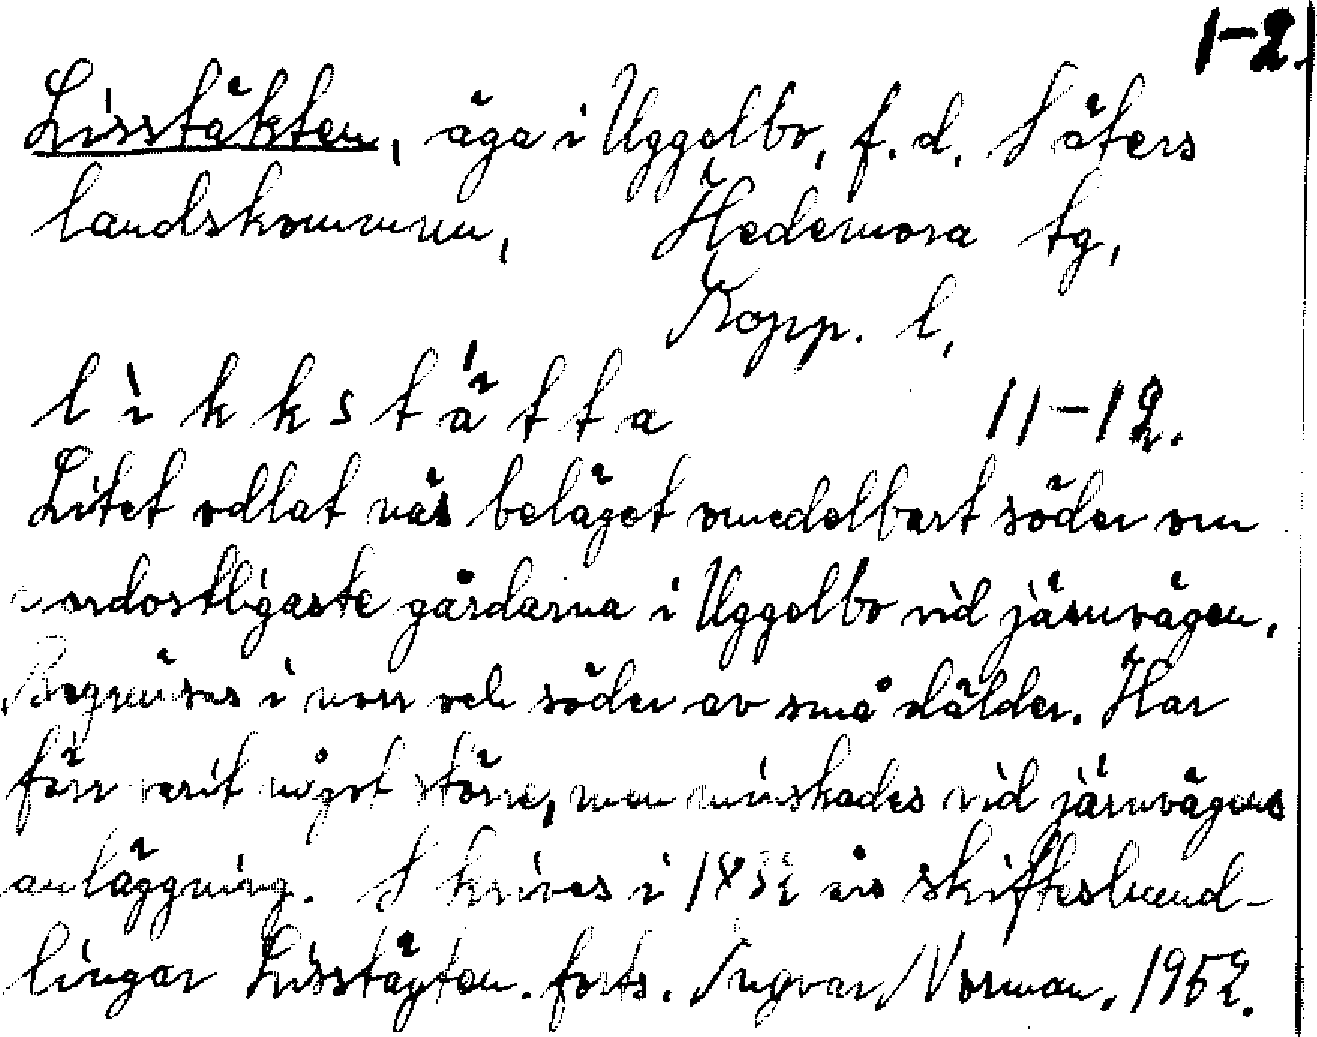 1-2.
Lisstäkten, äga i Uggelbo, f. d. Säters
landskommun, Hedemora tg,
Kopp. l,
l ì k k s t ä́ t t a 11-12.
Litet odlat näs beläget omedelbart söder om
nordostligaste gårdarna i Uggelbo vid järnvägen.
Begränsas i norr och söder av små dälder. Har
förr varit något större, men minskades vid järnvägens
anläggning. Skrives i 1832 års skifteshand-
lingar Lisstägten. forts. Ingvar Norman. 1952.